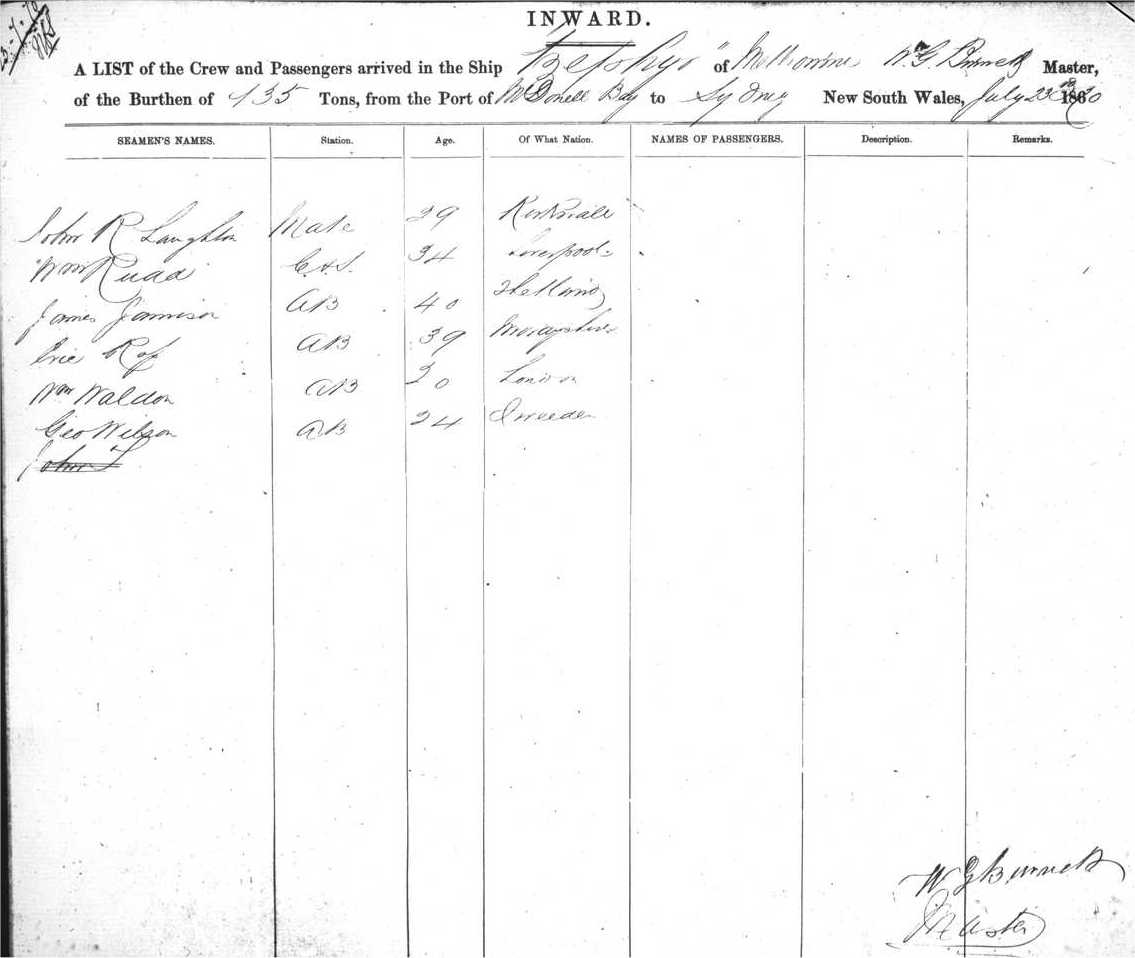 23-7-70
INWARD.
A LIST of the Crew and Passengers arrived in the Ship " of Melbourne W. G. Burnett Master,
of the Burthen of 135 Tons, from the Port of McDonell Bay to Sydney New South Wales, July 23rd 1870
SEAMEN'S NAMES. Station. Age. Of What Nation. NAMES OF PASSENGERS. Description. Remarks.
John R Laughton Mate 29
Wm Rudd C & S. 34 Liverpool
James Jamison AB 40 Shetland
AB 39 Morayshire
Wm Waldon AB 20 London
Geo Wilson AB 24 Sweeden
John L
W G Burnett
Master